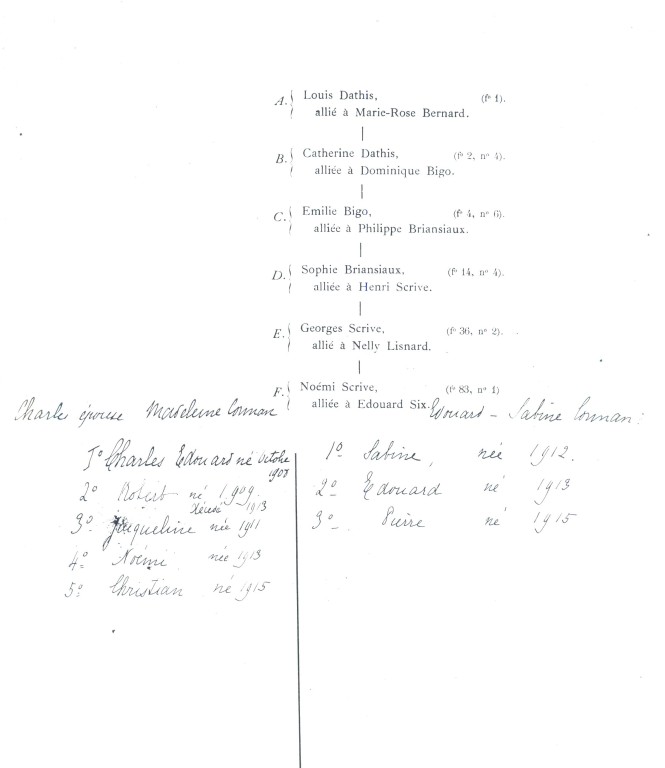 A. Louis Dathis, (fº 1).
allié à Marie-Rose Bernard.
B. Catherine Dathis, (fº 2, nº 4).
alliée à Dominique Bigo.
C. Emilie Bigo, (fº 4, nº 6).
alliée à Philippe Briansiaux.
D. Sophie Briansiaux, (fº 14, nº 4).
alliée à Henri Scrive.
E. Georges Scrive, (fº 36, nº 2).
allié à Nelly Lisnard.
F. Noémi Scrive, (fº 83, nº 1)
alliée à Edouard Six.
Charles épouse Madeleine Connan
1º Charles Edouard né Octobre 1908
2º Robert né 1909.
décédé 1913
3º Jacqueline née 1911
4º Noémi née 1913
5º Christian né 1915
Edouard – Sabine Connan:
1º Sabine, née 1912.
2º Edouard né 1913
3º Pierre né 1915